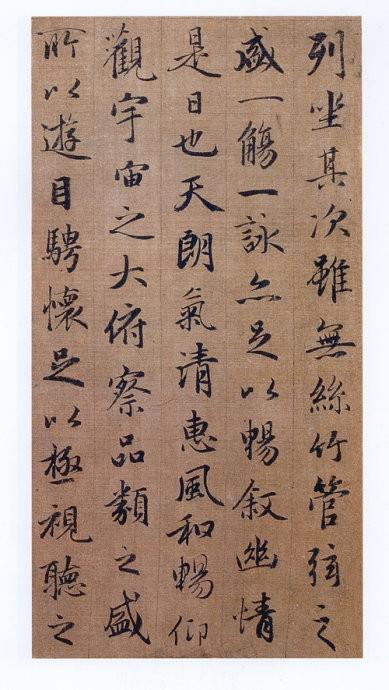 列坐其次雖無絲竹管弦之
盛一觴一詠亦足以暢叙幽情
是日也天朗氣清惠風和暢仰
觀宇宙之大俯察品類之盛
所以遊目騁懷足以極視聽之